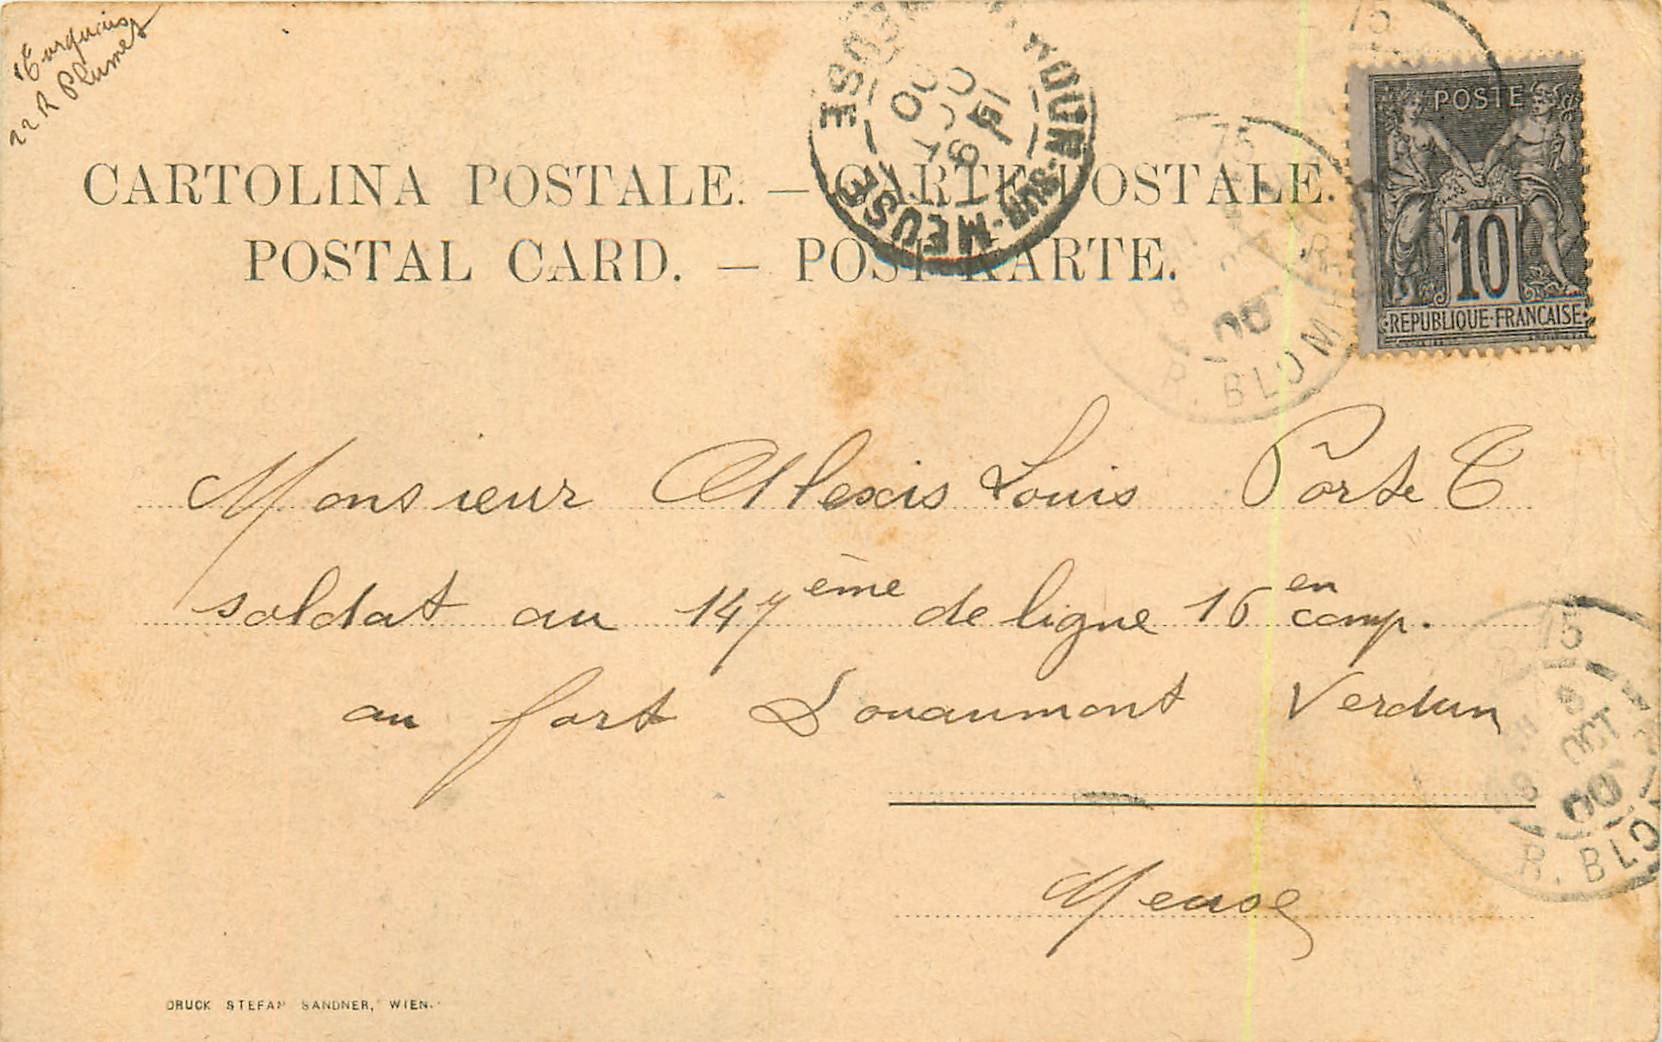 22 R Plumet
CARTOLINA POSTALE. — CARTE POSTALE.
POSTAL CARD. — POST-KARTE.
SUR-MEUSE MEUSE
15
9
OCT
00
POSTE
10
REPUBLIQUE FRANCAISE
75
00
R. BLOM
Monsieur Alexis Louis Porte C
soldat au 147ème de ligne 16 en comp.
au fort Douaumont Verdun
Meuse
75
9
OCT
00
R. BLO
DRUCK STEFAN SANDNER, WIEN.